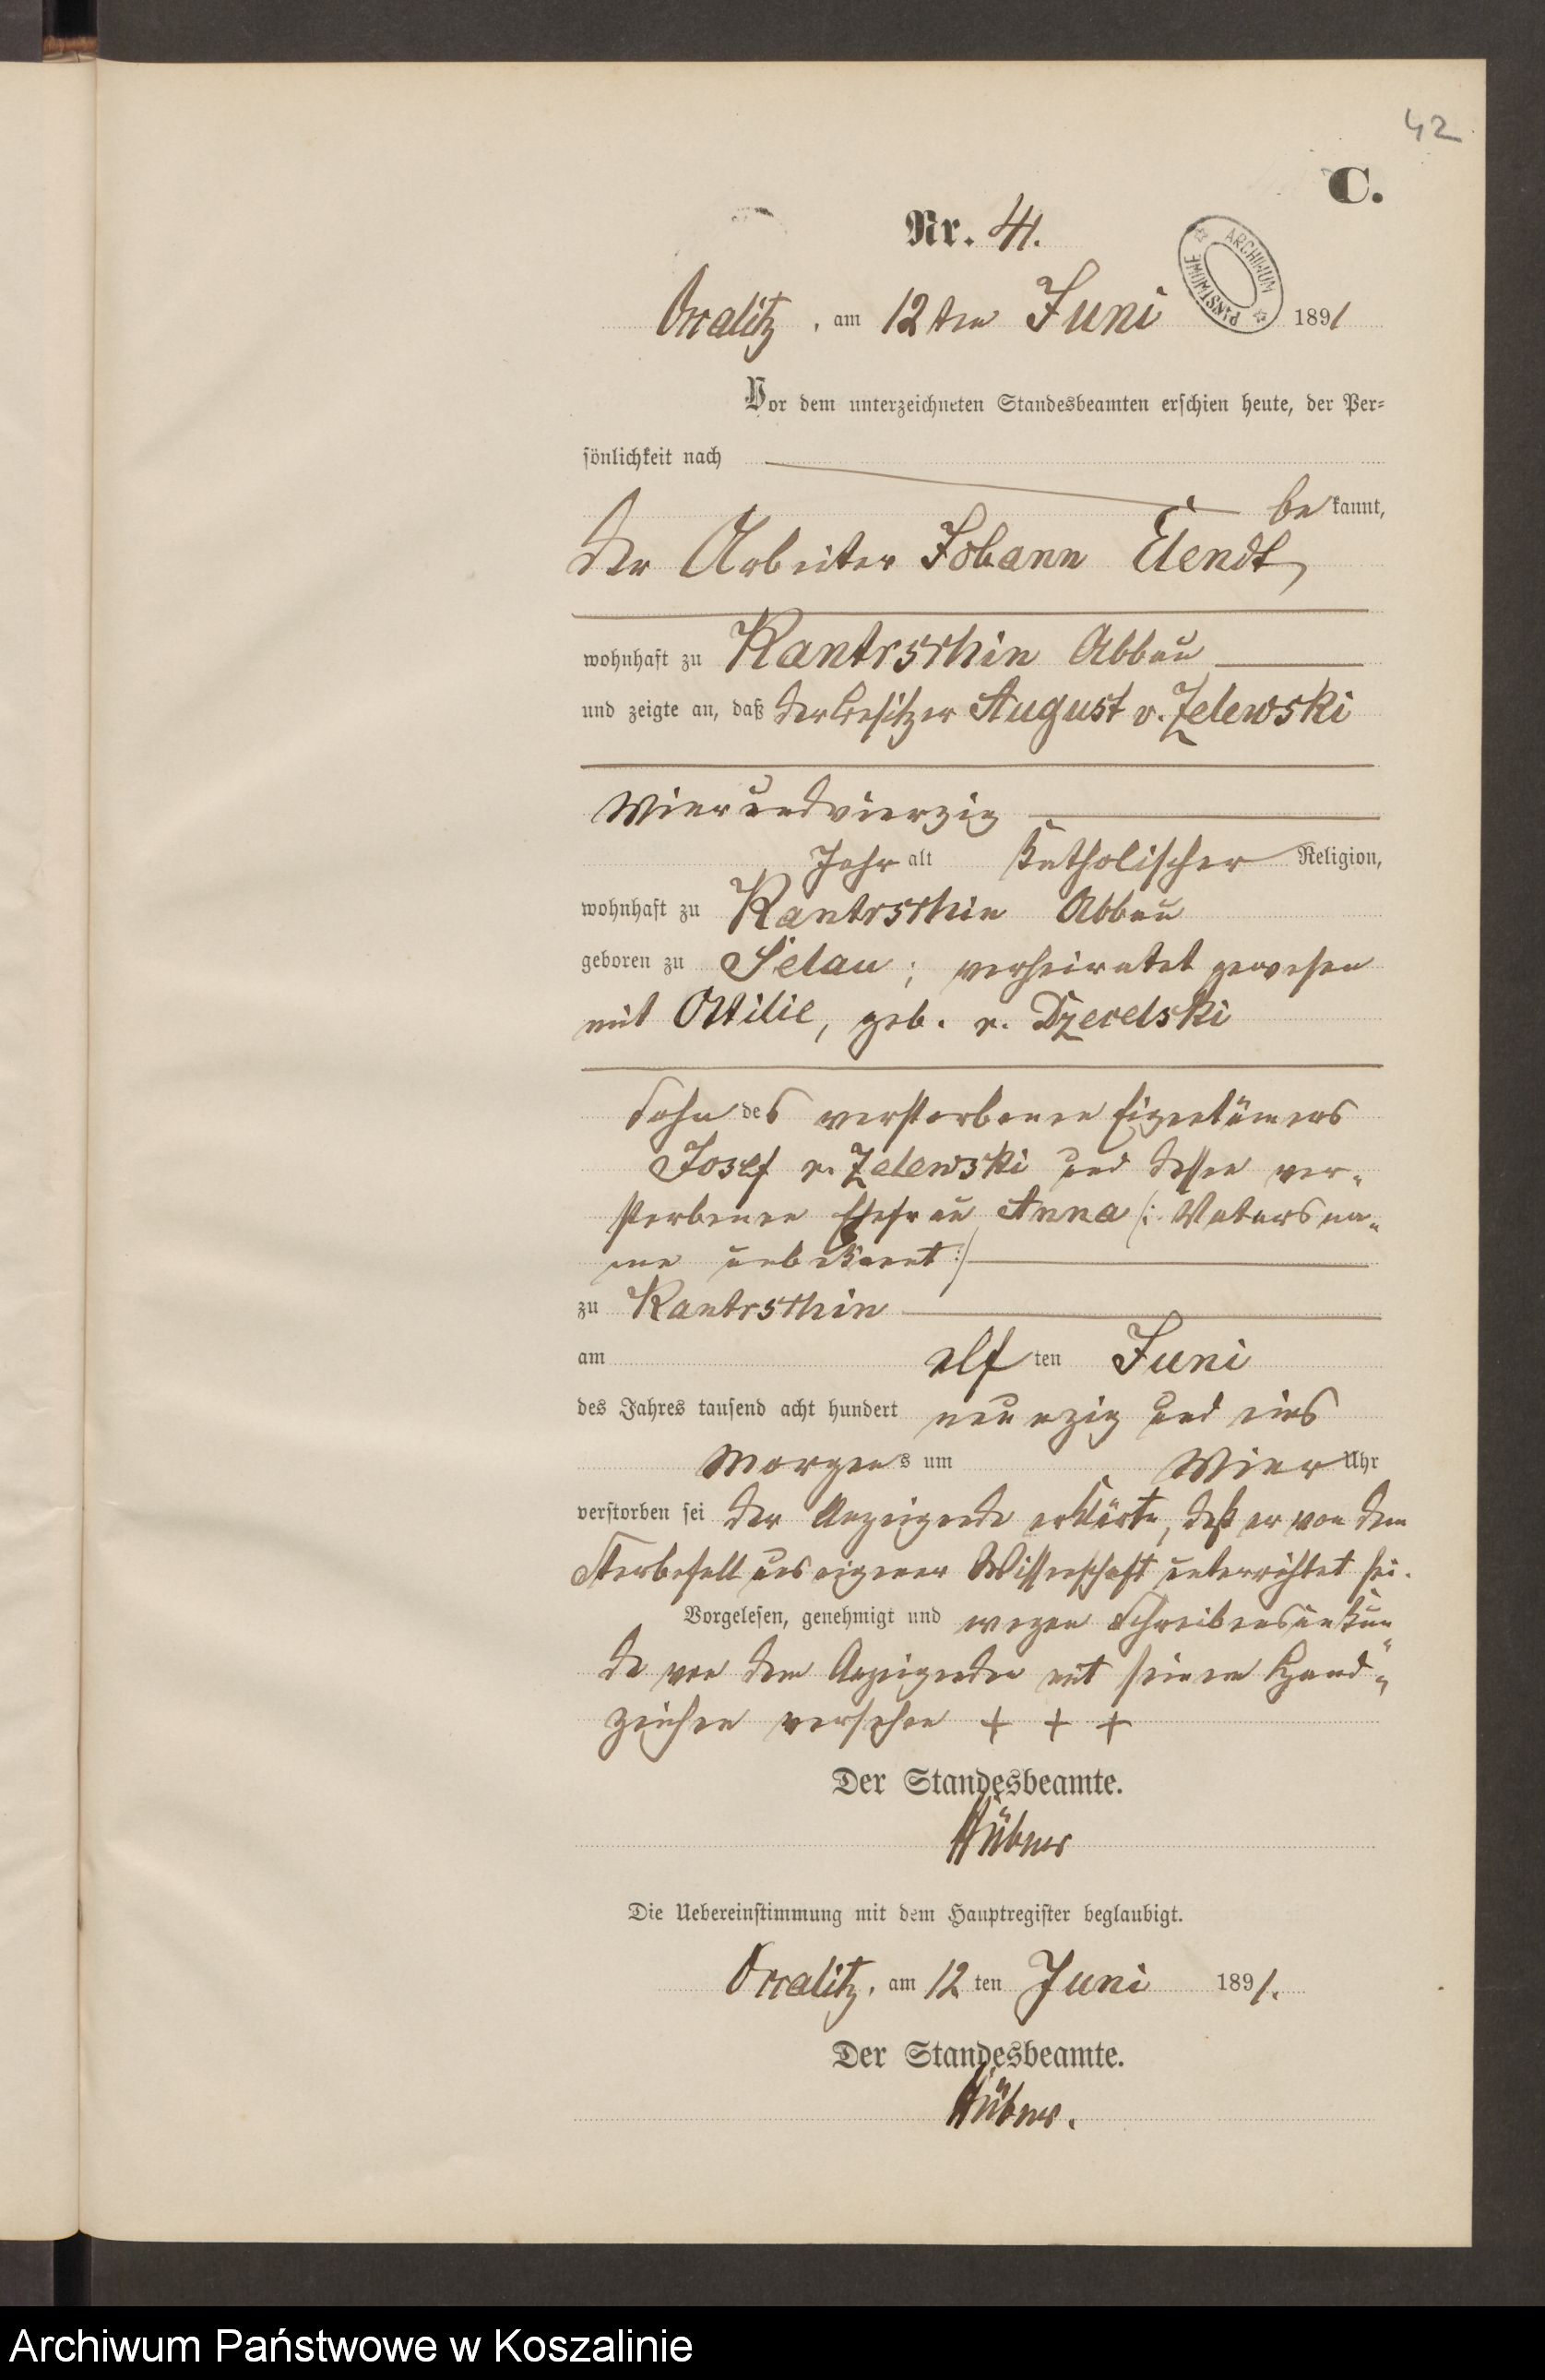 42
C.
Nr. 41.
ARCHIWUM PAŃSTWOWE
Occalitz, am 12ten Juni 1891
Vor dem unterzeichneten Standesbeamten erschien heute, der Per-
sönlichkeit nach
bekannt,
der Arbeiter Johann
wohnhaft zu Kantrschin Abbau
und zeigte an, daß der Besitzer August v. Zelewski
Vierundvierzig
Jahr alt katholischer Religion,
wohnhaft zu Kantrschin Abbau
geboren zu Selau; verheiratet gewesen
mit Ottilie, geb. v.
Sohn des verstorbenen Eigentümers
Josef v. Zelewski und dessen ver-
storbenen Ehefrau Anna /: Vatersna-
me unbekannt :/
zu Kantrschin
am elf ten Juni
des Jahres tausend acht hundert neunzig und eins
Morgens um Vier Uhr
verstorben sei der Anzeigende erklärte, daß er von dem
Sterbefall aus eigener Wissenschaft unterrichtet sei.
Vorgelesen, genehmigt und wegen Schreibensunkun-
de von dem Anzeigenden mit seinem Hand-
zeichen versehen + + +
Der Standesbeamte.
Hübner
Die Uebereinstimmung mit dem Hauptregister beglaubigt.
Occalitz, am 12 ten Juni 1891.
Der Standesbeamte.
Hübner.
Archiwum Państwowe w Koszalinie